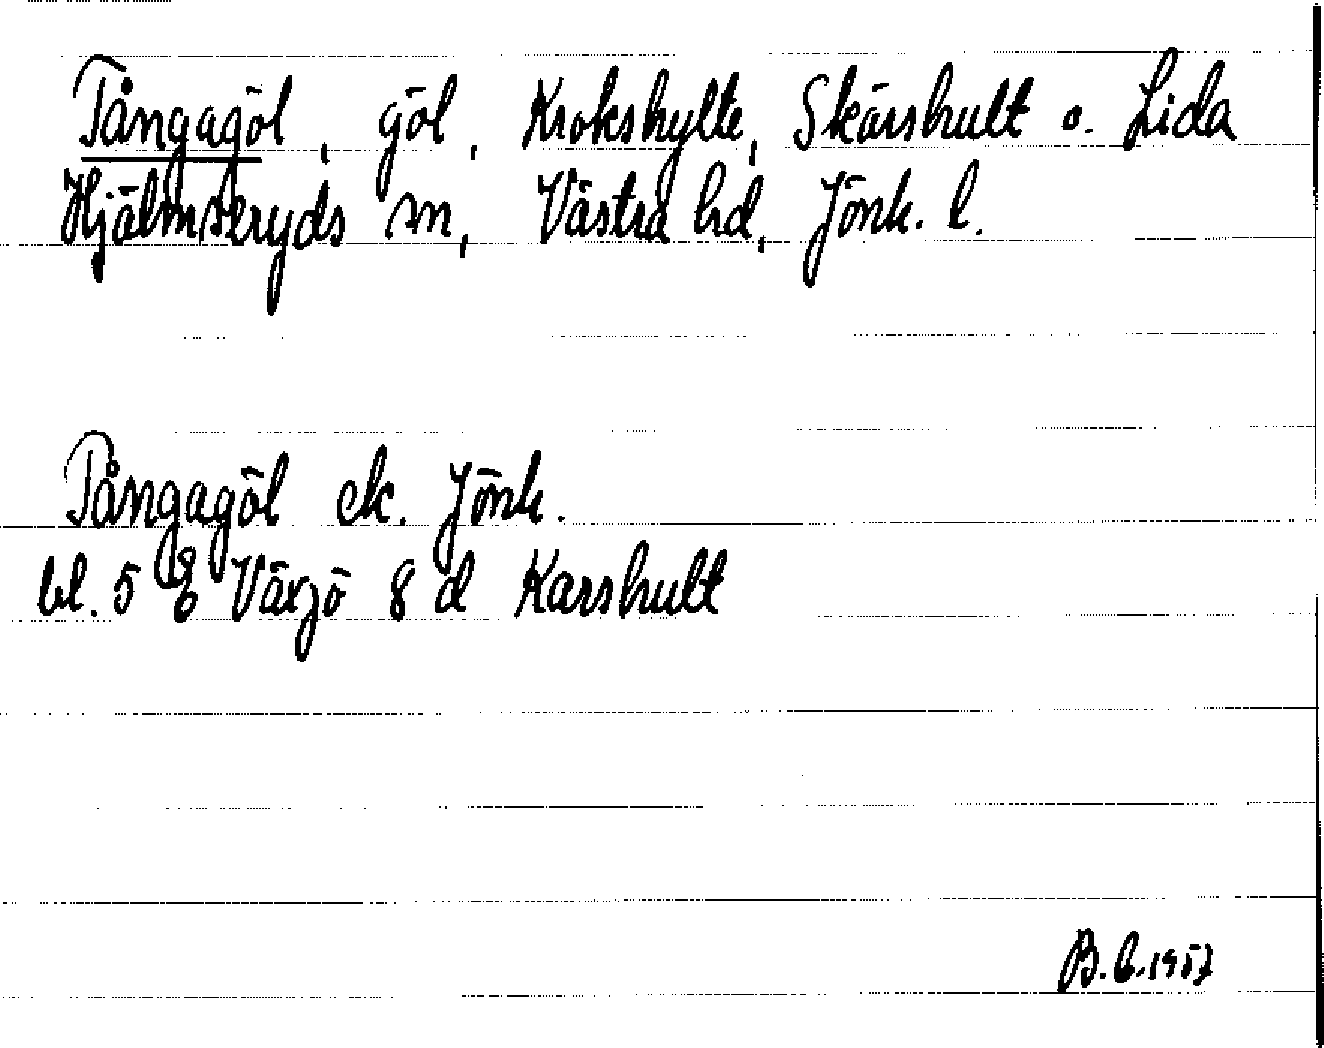 Tångagöl, göl, Krokshylte, Skärshult o. Lida
Hjälmseryds sn, Västra hd, Jönk. l.
Tångagöl ek. Jönk.
bl. 5 E Växjö 8 d Karshult
B. G. 1957